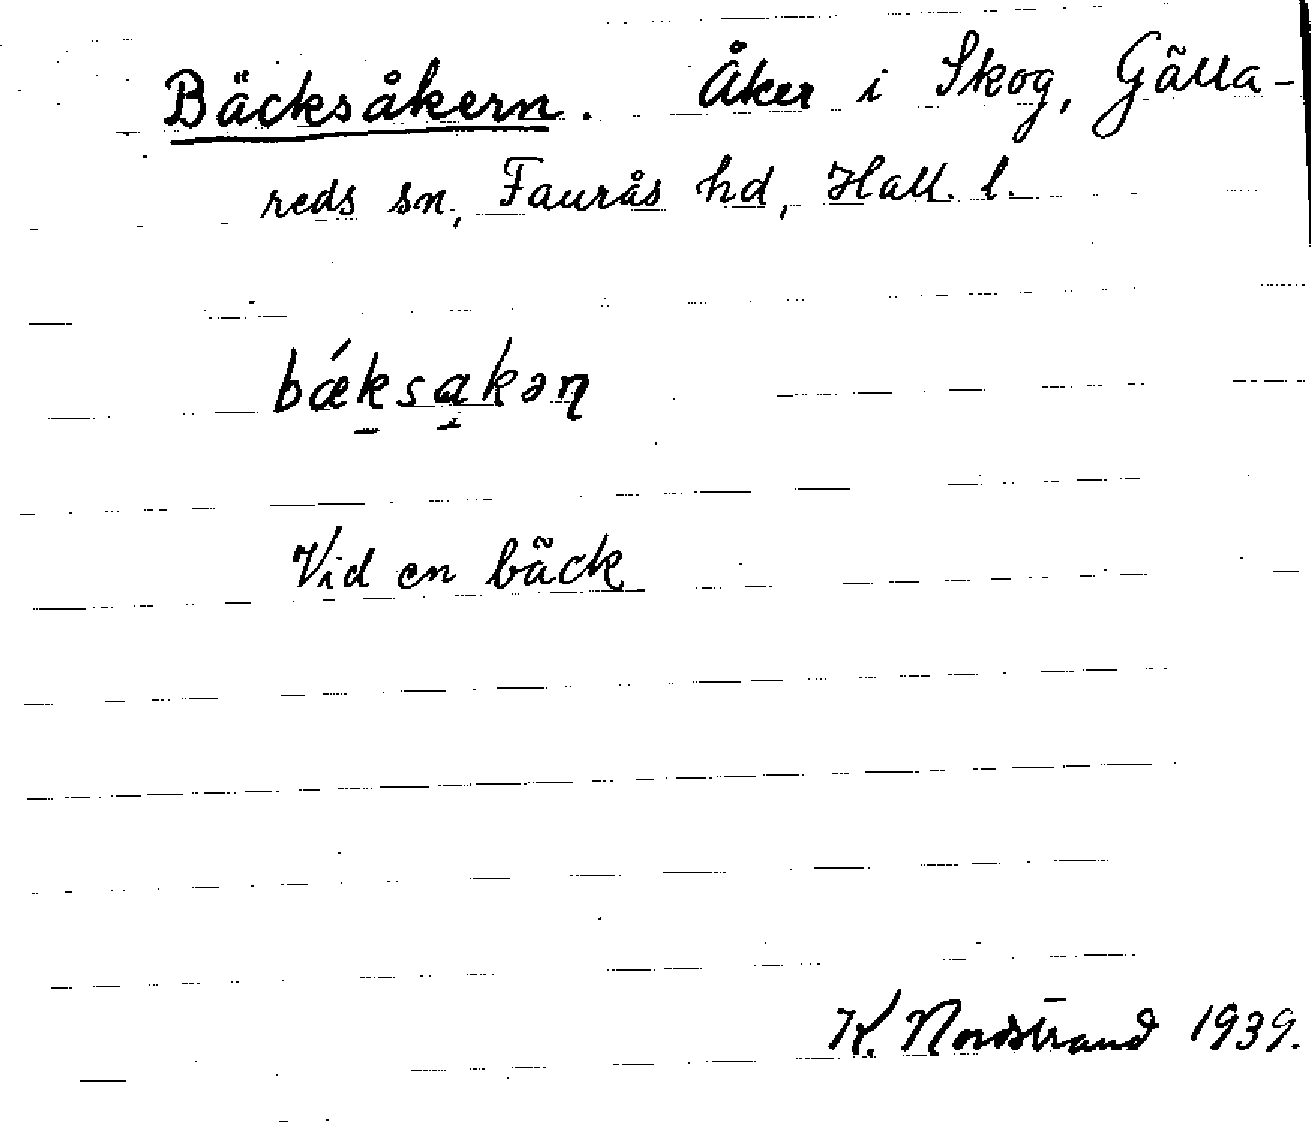 Bäcksåkern. Åker i Skog, Gälla-
reds sn, Faurås hd, Hall. l.
bǽk̠sa̠kəɳ
Vid en bäck
K. Nordstrand 1939.